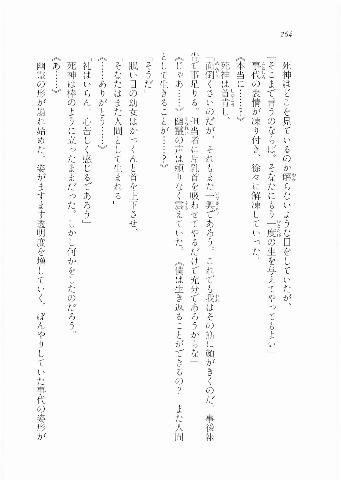 264
死神はどこを見ているのか頼らないような目をしていたが、
「そこまで言うのならば、そなたにもう一度の生を与えてやってもよい」
事代の表情が凍り付き、徐々に解凍していった。
《本当に……？》
死神は首肯し、
「面倒くさいのだが、それもまた一興であろう。これでも我はその筋に顔がきくのだ。事後承
告で事足りる。担当者に片乳首を吸わせてやるだけで充分であろうからな」
《じゃあ……》幽霊の声は頼りなく震えていた。《僕は生き返ることができるの？　また人間
として生きることが……？》
「そうだ」
眠い目の幼女はかくんと首を上下させ、
「そなたはまた人間として生まれる」
《……ありがとう……》
「礼はいらん。心苦しく感じるであろう」
死神は棒のように立ったままだった。しかし何かをしたのだろう。
《あ……》
幽霊の形が崩れ始めた。姿がますます透明度を増していく。ぼんやりしていた事代の姿形が